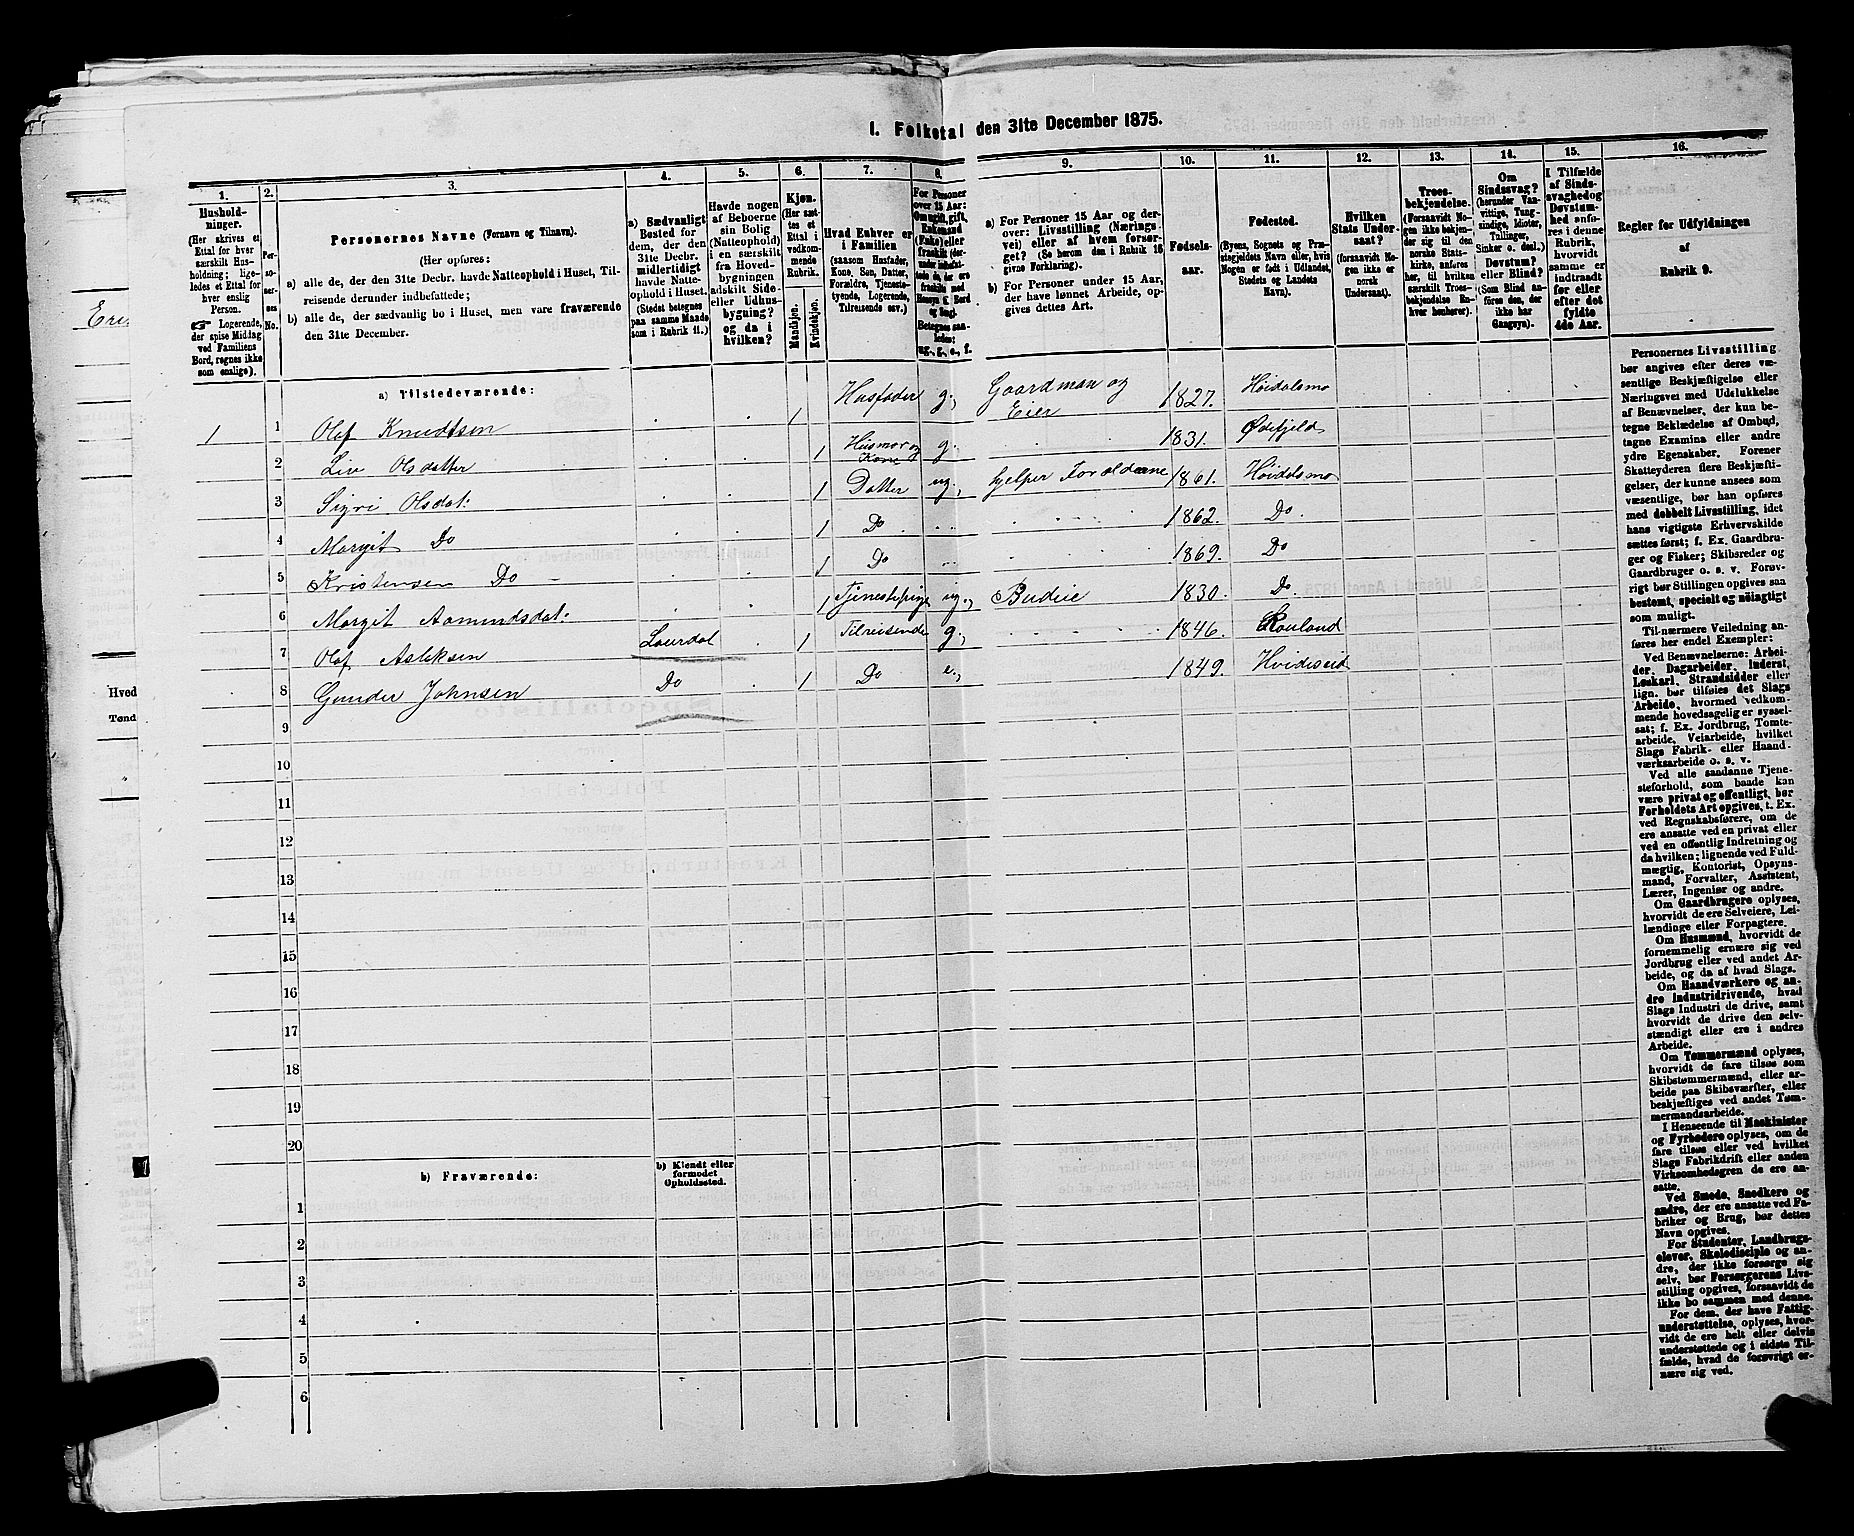 I. Folketal den 31te December 1875.
1.
2.
3.
4.
5.
6.
7.
8.
9.
10.
11.
12.
13.
14.
15.
16.
Hushold-
ninger.
(Her skrives et
Ettal for hver
særskilt Hus-
holdning; lige-
ledes et Ettal for
hver enslig
Person.
Logerende,
der spise Middag
ved Familiens
Bord, regnes ikke
som enslige).
Per-
so-
ner-
nes
No.
Personernes Navne (Fornavn og Tilnavn).
(Her opføres:
a) alle de, der den 31te Decbr. havde Natteophold i Huset, Til-
reisende derunder indbefattede;
b) alle de, der sædvanlig bo i Huset, men vare fraværende
den 31te December.
a) Sædvanligt
Bosted for
dem, der den
31te Decbr.
midlertidigt
havde Natte-
ophold i Huset.
(Stedet betegnes
paa samme Maade
som i Rubrik 11.)
Havde nogen
af Beboerne
sin Bolig
(Natteophold)
i en særskilt
fra Hoved-
bygningen
adskilt Side-
eller Udhus-
bygning?
og da i
hvilken?
Kjøn.
(Her sæt-
tes et
Ettal i
vedkom-
mende
Rubrik.
Mandkjøn.
Kvindekjøn.
Hvad Enhver er
i Familien
(saasom Husfader,
Kone, Søn, Datter,
Forældre, Tjeneste-
tyende, Logerende,
Tilreisende osv.)
For Personer
over 15 Aar:
a) For Personer 15 Aar og der-
over: Livsstilling (Nærings-
vei) eller af hvem forsør-
get? (Se herom den i Rubrik 16
givne Forklaring).
b) For Personer under 15 Aar,
der have lønnet Arbeide, op-
gives dettes Art.
Fødsels-
aar.
Fødested.
(Byens, Sognets og Præ-
stegjeldets Navn eller, hvis
Nogen er født i Udlandet,
Stedets og Landets
Navn).
Hvilken
Stats Under-
saat?
(forsaavidt No-
gen ikke er
norsk
Undersaat).
Troes-
bekjendelse.
(Forsaavidt No-
gen ikke bekjen-
der sig til den
norske Stats-
kirke, anføres
her, til hvilken
særskilt Troes-
bekjendelse En-
hver henhører).
Om
Sindssvag?
(herunder Van-
vittige, Tung-
sindige, Idioter,
Tullinger,
Sinker o. desl.)
Døvstum?
eller Blind?
(Som Blind an-
føres den, der
ikke har
Gangsyn).
I Tilfælde
af Sinds-
svaghed og
Døvstum-
hed anfø-
res i denne
Rubrik,
hvorvidt
samme er
indtraadt
før eller
efter det
fyldte
4de Aar.
Regler for Udfyldningen
af
Rubrik 9.
a) Tilstedeværende:
1 1 Olaf Knudtsen 1 Husfader g., Gaardman og Eier 1827. Høidalsmo
2 Liv Olsdatter 1 Husmor og Kone g. 1831. Øifjeld
3 Sigri Olsdat: 1 Datter ug., hjelper Foreldrene 1861. Høidalsmo
4 Margit Do 1 Do 1862. Do.
5 Kristensen Do 1 Do 1869. Do
6 Margit Aamundsdat: 1 Tjenestepige ug., Budeie 1830. Do.
7 Olaf Asleksen Laurdal 1 Tilreisende g., 1846. Rauland
8 Gunder Johnsen Do 1 Do e., 1849. Hvideseid
9
10
11
12
13
14
15
16
17
18
19
20
b) Fraværende:
b) Kjendt eller
formodet
Opholdssted.
1
2
3
4
5
6
Personernes Livsstilling
bør angives efter deres væ-
sentlige Beskjæftigelse eller
Næringsvei med Udelukkelse
af Benævnelser, der kun be-
tegne Beklædelse af Ombud,
tagne Examina eller andre
ydre Egenskaber. Forener
Skatteyderen flere Beskjæfti-
gelser, der kunne ansees som
væsentlige, bør han opføres
med dobbelt Livsstilling, idet
hans vigtigste Erhvervskilde
sættes først; f. Ex. Gaardbru-
ger og Fisker; Skibsreder og
Gaardbruger o. s. v. Forøv-
rigt bør Stillingen opgives saa
bestemt, specielt og nøiagtigt
som muligt.
Til nærmere Veiledning an-
føres her endel Exempler:
Ved Benævnelserne: Arbei-
der, Dagarbeider, Inderst,
Løskarl, Strandsidder eller
lign. bør tilføies det Slags
Arbeide, hvormed vedkom-
mende hovedsagelig er syssel-
sat; f. Ex. Jordbrug, Tomte-
arbeide, Veiarbeide, hvilket
Slags Fabrik- eller Haand-
værksarbeide o. s. v.
Ved alle saadanne Tjene-
steforhold, som baade kan
være privat og offentligt, bør
Forholdets Art opgives, t. Ex.
ved Regnskabsførere, om de
ere ansatte ved en privat eller
ved en offentlig Indretning og
da hvilken; lignende ved Fuld-
mægtig, Kontorist, Opsyns-
mand, Forvalter, Assistent,
Lærer, Ingeniør og andre.
Om Gaardbrugere oplyses,
hvorvidt de ere Selveiere, Lei-
lændinge eller Forpagtere.
Om Husmænd, hvorvidt de
fornemmelig ernære sig ved
Jordbrug eller ved andet Ar-
beide, og da af hvad Slags.
Om Haandværkere og an-
dre Industridrivende, hvad
Slags Industri de drive, samt
hvorvidt de drive den selv-
stændigt eller ere i andres
Arbeide.
Om Tømmermænd oplyses,
hvorvidt de fare tilsøs som
Skibstømmermænd, eller ar-
beide paa Skibsværfter, eller
beskjæftiges ved andet Tøm-
mermandsarbeide.
I Henseende til Maskinister
og Fyrbødere oplyses, om de
fare tilsøs eller ved hvilket
Slags Fabrikdrift eller anden
Virksomhedsgren de ere an-
satte.
Ved Smede, Snedkere og
andre, der ere ansatte ved Fa-
briker og Brug, bør dettes
Navn opgives.
For Studenter, Landbrugs-
elever, Skoledisciple og an-
dre, der ikke forsørge sig
selv, bør Forsørgerens Livs-
stilling opgives, forsaavidt de
ikke bo sammen med denne.
For dem, der have Fattig-
understøttelse, oplyses, hvor-
vidt de ere helt eller delvis
understøttede og i sidste Til-
fælde, hvad de forøvrigt er-
nære sig ved.